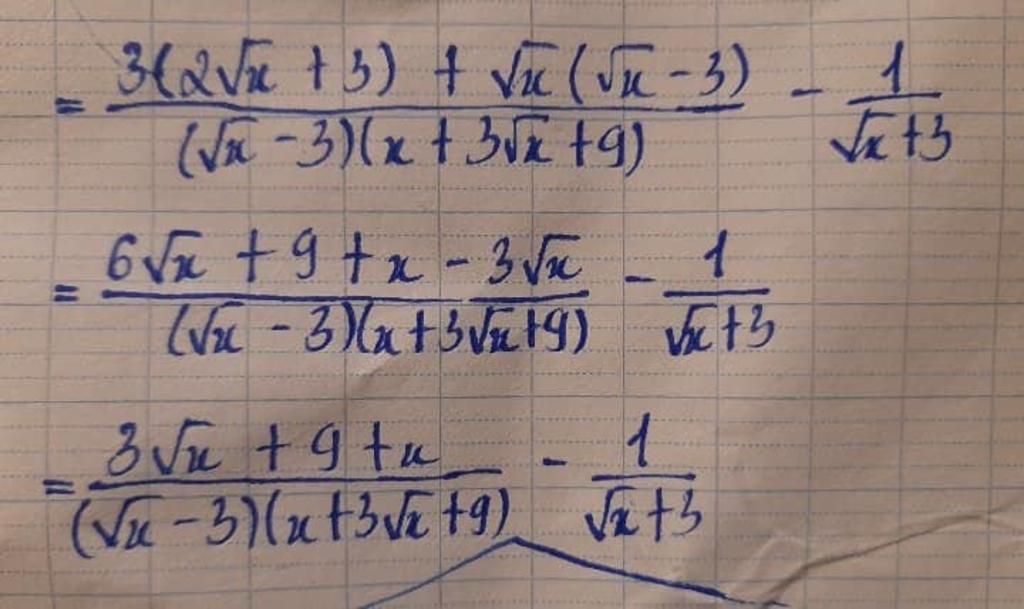 = (3(2√x + 3) + √x(√x - 3))/((√x - 3)(x + 3√x + 9)) - 1/(√x + 3)
= (6√x + 9 + x - 3√x)/((√x - 3)(x + 3√x + 9)) - 1/(√x + 3)
= (3√x + 9 + x)/((√x - 3)(x + 3√x + 9)) - 1/(√x + 3)